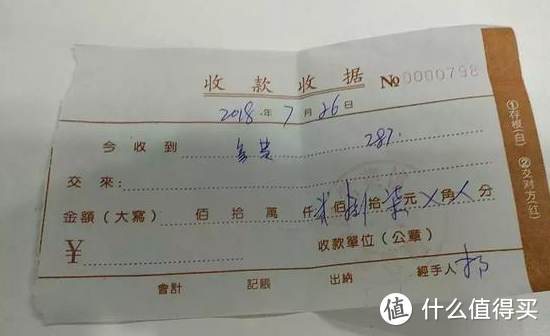 收款收据 №0000798
2018年7月26日
今收到 287.
交來：
金額(大寫) 佰 拾 萬 仟 佰 拾 柒 元 角 分
¥ 收款單位（公章）
會計 記賬 出納 經手人
①存根(白) ②交对方(红)
值 什么值得买